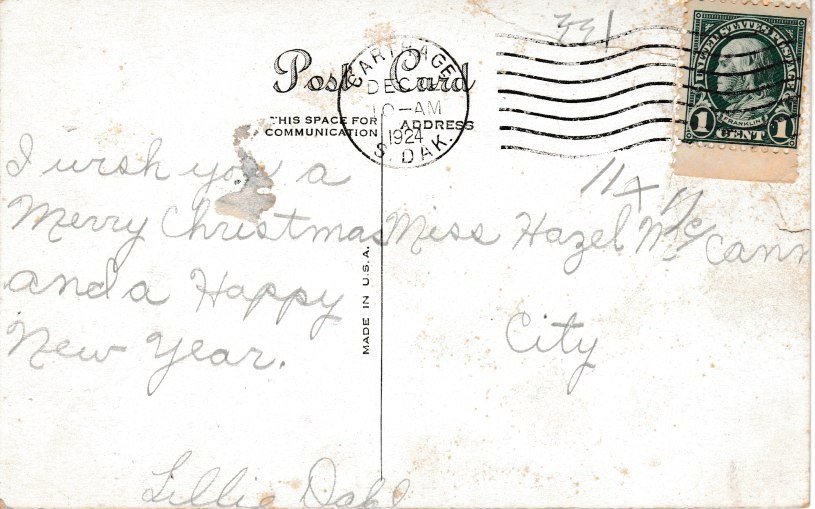 331
Post Card
CARTHAGE
DEC
10-AM
1924
S. DAK.
UNITED STATES POSTAGE
FRANKLIN
1 CENT 1
THIS SPACE FOR
COMMUNICATION
ADDRESS
I wish you a
Merry Christmas
and a Happy
New Year.
Lillie Dahl
MADE IN U.S.A.
Miss Hazel McCann
City